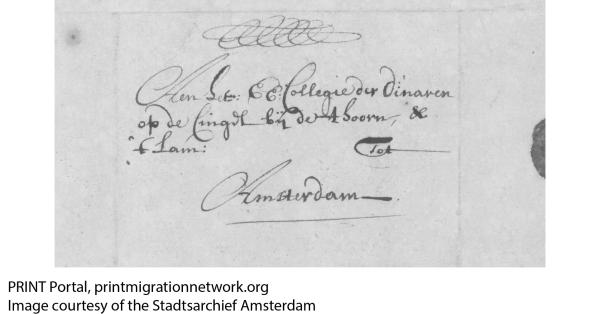 Aen het: EE: Collegie der Dinaren
op de Cingel bij de thoorn, &
t Lam:
Tot
Amsterdam
PRINT Portal, printmigrationnetwork.org
Image courtesy of the Stadtsarchief Amsterdam